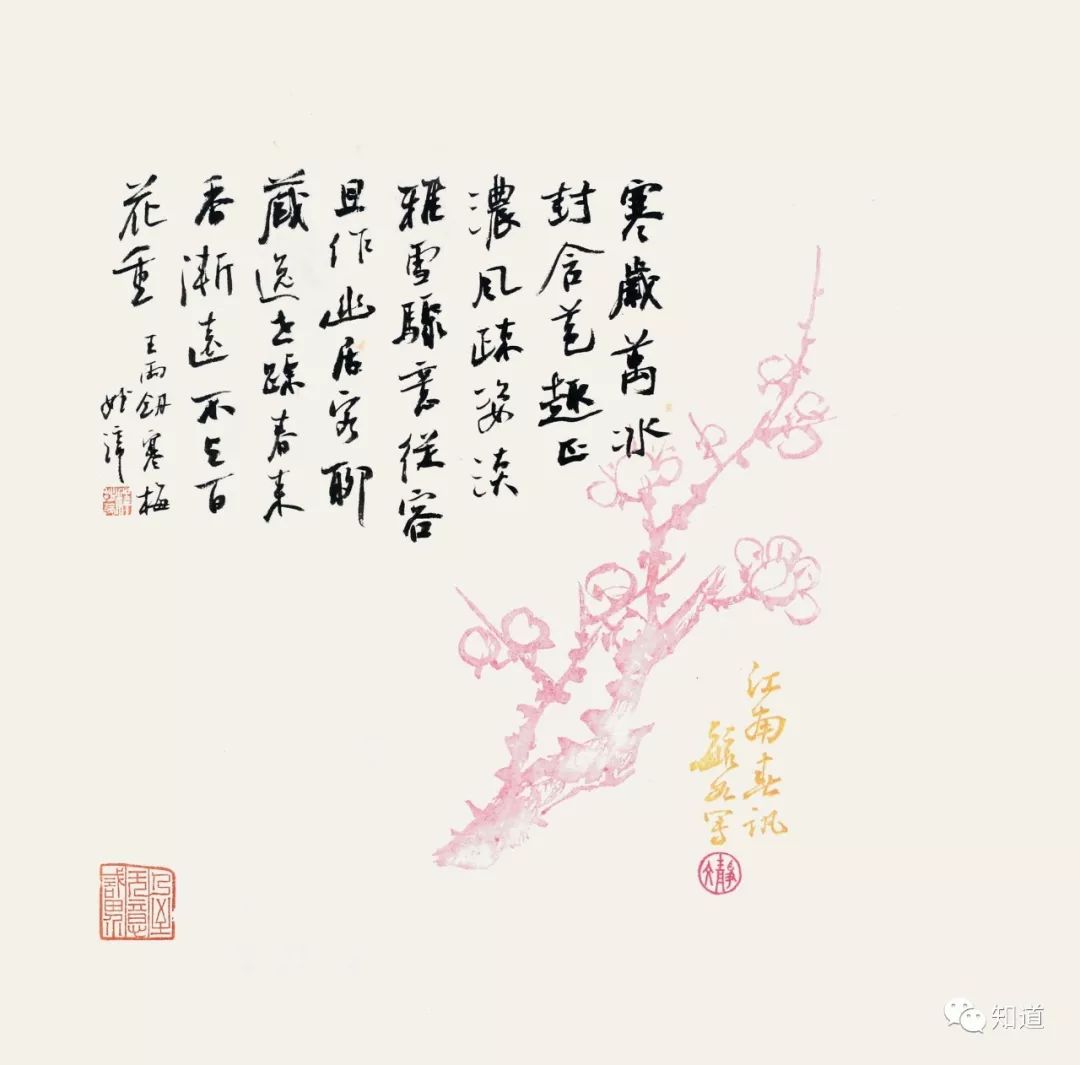 寒歲萬冰
封含苞趣正
濃風疎姿淡
雅雪驟意從容
且作幽居客聊
藏逸世蹤春來
香漸遠不与百
花重
王雨 寒梅
江南春訊
寫
知道